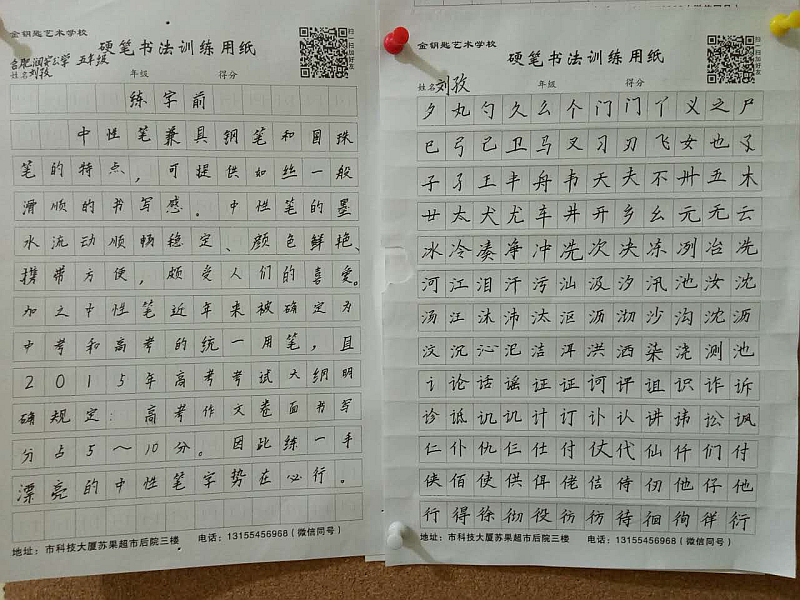 金钥匙艺术学校
硬笔书法训练用纸
扫一扫加好友
五年级
姓名 刘孜 年级 得分
练字前
中性笔兼具钢笔和圆珠
笔的特点，可提供如丝一般
滑顺的书写感。中性笔的墨
水流动顺畅稳定、颜色鲜艳、
携带方便，颇受人们的喜爱。
加之中性笔近年来被确定为
中考和高考的统一用笔，且
2015年高考考试大纲明
确规定：高考作文卷面书写
分占5～10分。因此练一手
漂亮的中性笔字势在必行。
地址：市科技大厦苏果超市后院三楼 电话：13155456968（微信同号）
金钥匙艺术学校
硬笔书法训练用纸
扫一扫加好友
姓名 刘孜 年级 得分
夕丸勺久么个门门丫义之尸
巳弓己卫马叉习刃飞女也
子孑王丰舟韦天夫不卅五木
廿太犬尤车井开乡幺元无云
冰冷凑净冲冼次决冻冽冶冼
河江泪汗污汕汲汐汛池汝沈
汤江沐沛汰沤沥沏沙沟沈沥
汶沉沁汜洁洱洪洒染浇测池
讠论话谣证证诃评诅识诈诉
诊诋讥讥计订讣认讲讳讼讽
仁仆仇仨仕付仗代仙仟们付
侠佰使供佴佬佶侍仞他仔他
行得徐彻役彷彷待徊徇徉衍
地址：市科技大厦苏果超市后院三楼 电话：13155456968（微信同号）